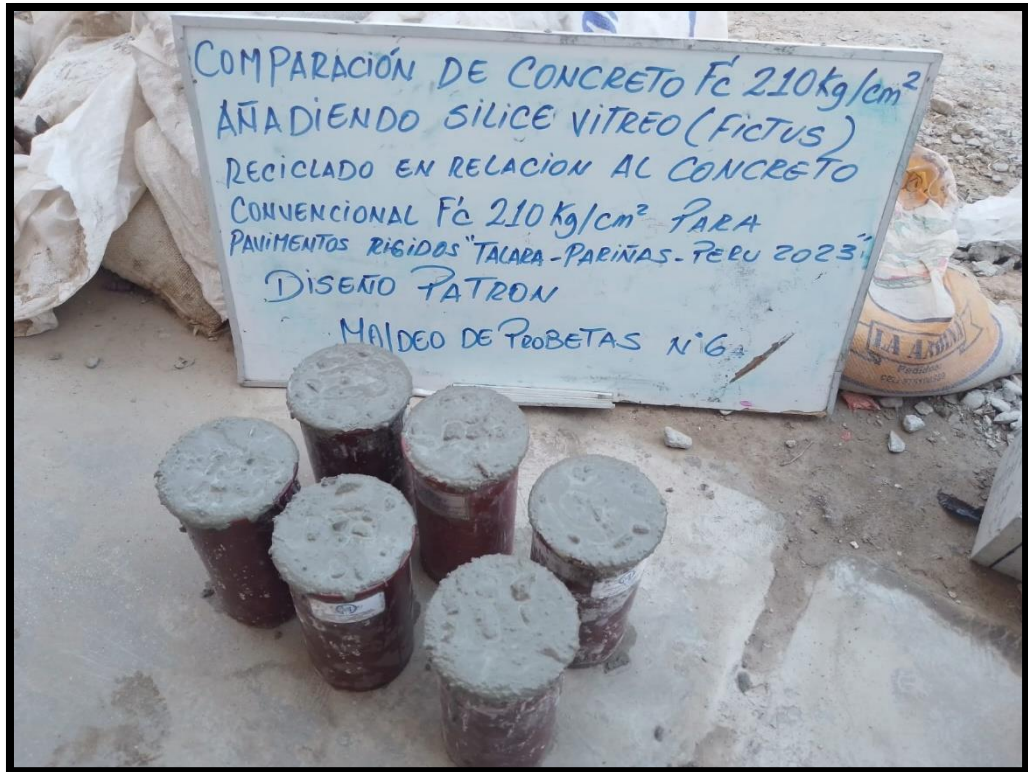 COMPARACIÓN DE CONCRETO F'C 210 Kg/cm²
AÑADIENDO SILICE VITREO (FICTUS)
RECICLADO EN RELACION AL CONCRETO
CONVENCIONAL F'C 210 Kg/cm² PARA
PAVIMENTOS RIGIDOS "TALARA-PARIÑAS-PERU 2023"
DISEÑO PATRON
MOLDEO DE PROBETAS N°6
LA
Pedidos